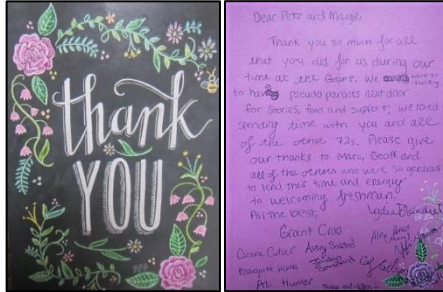 thank
YOU
Dear Peter and Margie,
Thank you so much for all
that you did for us during our
time at the Grant. We were so lucky
to have pseudo parents next door
for stories, food and support! We loved
spending time with you and all
of the other '72s. Please give
our thanks to Marc, Geoff and
all of the others who were so generous
to lend their time and energy
to welcoming freshman.
All the best,
Grant Croo